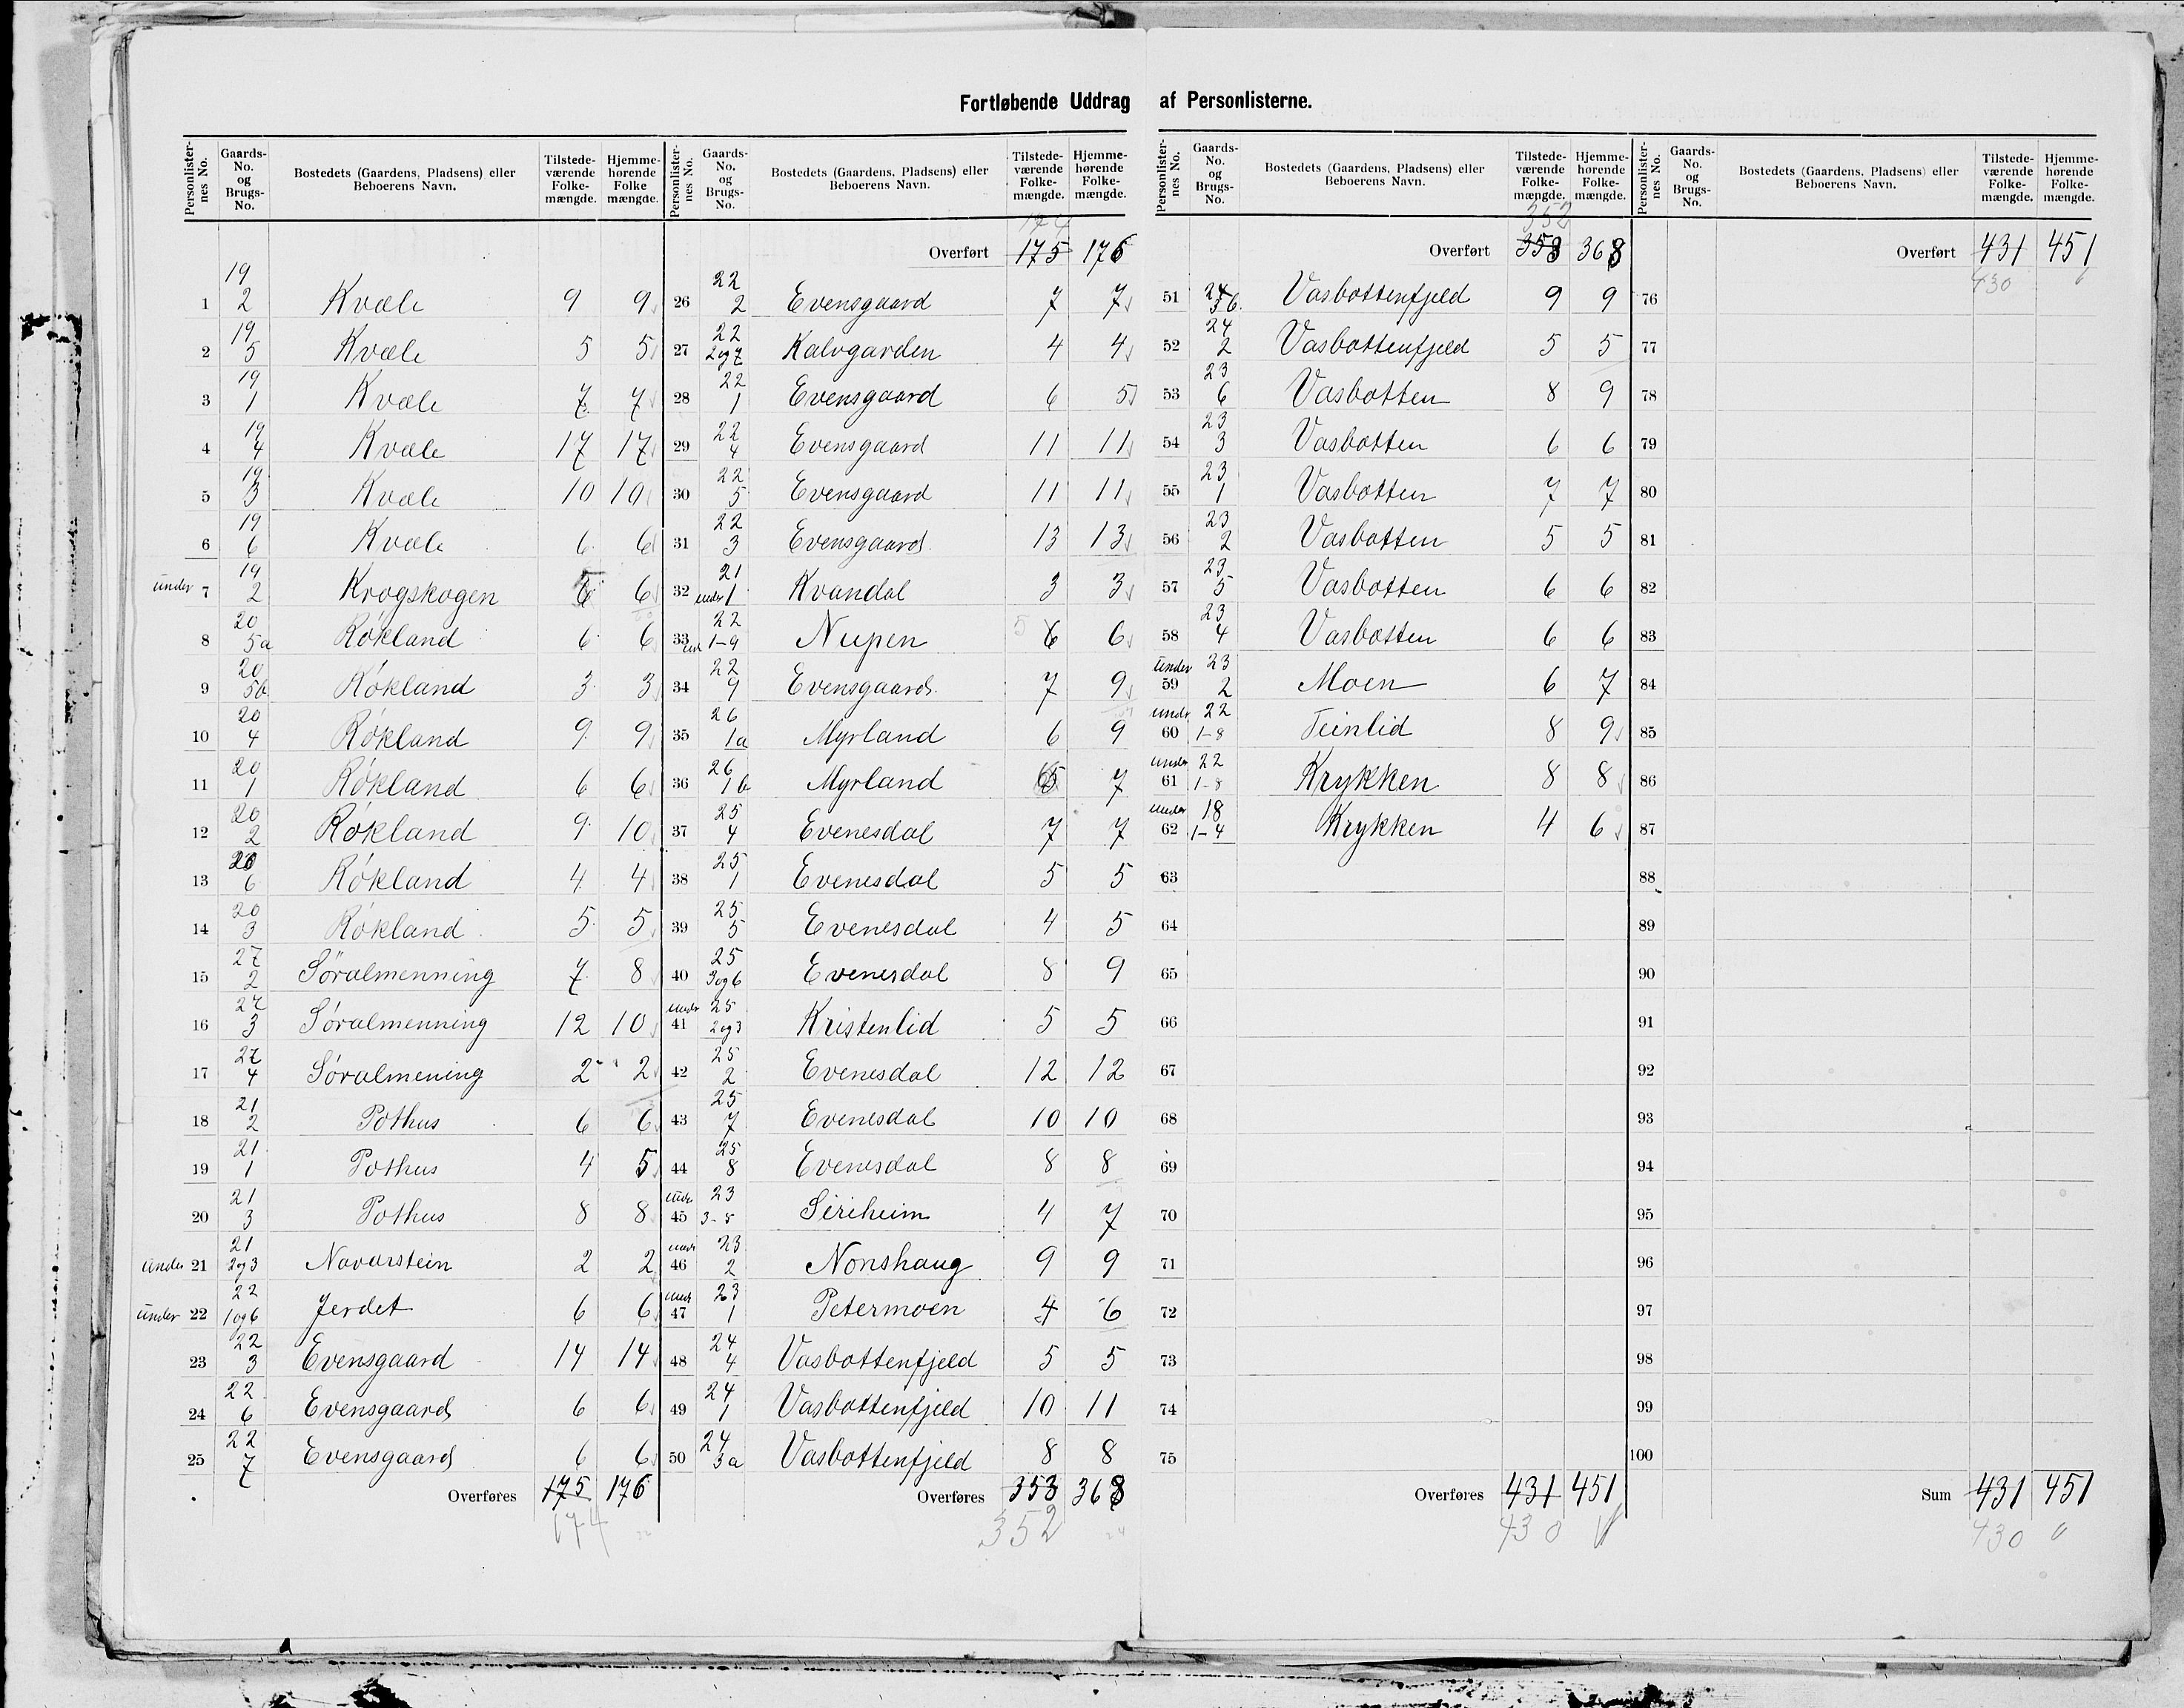 Fortløbende Uddrag af Personlisterne.
Personlister-nes No. | Gaards-No. og Brugs-No. | Bostedets (Gaardens, Pladsens) eller Beboerens Navn. | Tilstede-værende Folke-mængde. | Hjemme-hørende Folke mængde.
1 19/2 Kvæle 9 9
2 19/5 Kvæle 5 5
3 19/1 Kvæle 7 7
4 19/4 Kvæle 17 17
5 19/3 Kvæle 10 10
6 19/6 Kvæle 6 6
under 7 19/2 Krogskogen 6 6
8 20/5a Røkland 6 6
9 20/5b Røkland 3 3
10 20/4 Røkland 9 9
11 20/1 Røkland 6 6
12 20/2 Røkland 9 10
13 20/6 Røkland 4 4
14 20/3 Røkland 5 5
15 27/2 Søralmenning 7 8
16 27/3 Søralmenning 12 10
17 27/4 Søralmening 2 2
18 21/2 Pothus 6 6
19 21/1 Pothus 4 5
20 21/3 Pothus 8 8
under 21 21/2og3 Navarstein 2 2
under 22 22/1og6 Jerdet 6 6
23 22/3 Evensgaard 14 14
24 22/6 Evensgaard 6 6
25 22/7 Evensgaard 6 6
Overføres 175 176
174
Personlister-nes No. | Gaards-No. og Brugs-No. | Bostedets (Gaardens, Pladsens) eller Beboerens Navn. | Tilstede-værende Folke-mængde. | Hjemme-hørende Folke-mængde.
174
Overført 175 176
26 22/2 Evensgaard 7 7
27 22/2og7 Kalvgarden 4 4
28 22/1 Evensgaard 6 5
29 22/4 Evensgaard 11 11
30 22/5 Evensgaard 11 11
31 22/3 Evensgaard 13 13
32 under 21/1 Kvandal 3 3
33 und 22/1-9 Nupen 5 6 6
34 22/9 Evensgaard 7 9
35 26/1a Myrland 6 9
36 26/1b Myrland 5 7
37 25/4 Evenesdal 7 7
38 25/1 Evenesdal 5 5
39 25/5 Evenesdal 4 5
40 25/3og6 Evenesdal 8 9
under 41 25/2og3 Kristenlid 5 5
42 25/2 Evenesdal 12 12
43 25/7 Evenesdal 10 10
44 25/8 Evenesdal 8 8
under 45 23/3-5 Siriheim 4 7
under 46 23/2 Nonshaug 9 9
under 47 23/1 Petermoen 4 6
48 24/4 Vasbottenfjeld 5 5
49 24/1 Vasbottenfjeld 10 11
50 24/3a Vasbottenfjeld 8 8
Overføres 353 368
352
Personlister-nes No. | Gaards-No. og Brugs-No. | Bostedets (Gaardens, Pladsens) eller Beboerens Navn. | Tilstede-værende Folke-mængde. | Hjemme-hørende Folke-mængde.
352
Overført 353 368
51 24/3b. Vasbottenfjeld 9 9
52 24/2 Vasbottenfjeld 5 5
53 23/6 Vasbotten 8 9
54 23/3 Vasbotten 6 6
55 23/1 Vasbotten 7 7
56 23/2 Vasbotten 5 5
57 23/5 Vasbotten 6 6
58 23/4 Vasbotten 6 6
under 59 23/2 Moen 6 7
under 60 22/1-8 Teinlid 8 9
under 61 22/1-8 Krykken 8 8
under 62 18/1-4 Krykken 4 6
63
64
65
66
67
68
69
70
71
72
73
74
75
Overføres 431 451
430
Personlister-nes No. | Gaards-No. og Brugs-No. | Bostedets (Gaardens, Pladsens) eller Beboerens Navn. | Tilstede-værende Folke-mængde. | Hjemme-hørende Folke-mængde.
Overført 431 451
430
76
77
78
79
80
81
82
83
84
85
86
87
88
89
90
91
92
93
94
95
96
97
98
99
100
Sum 431 451
430